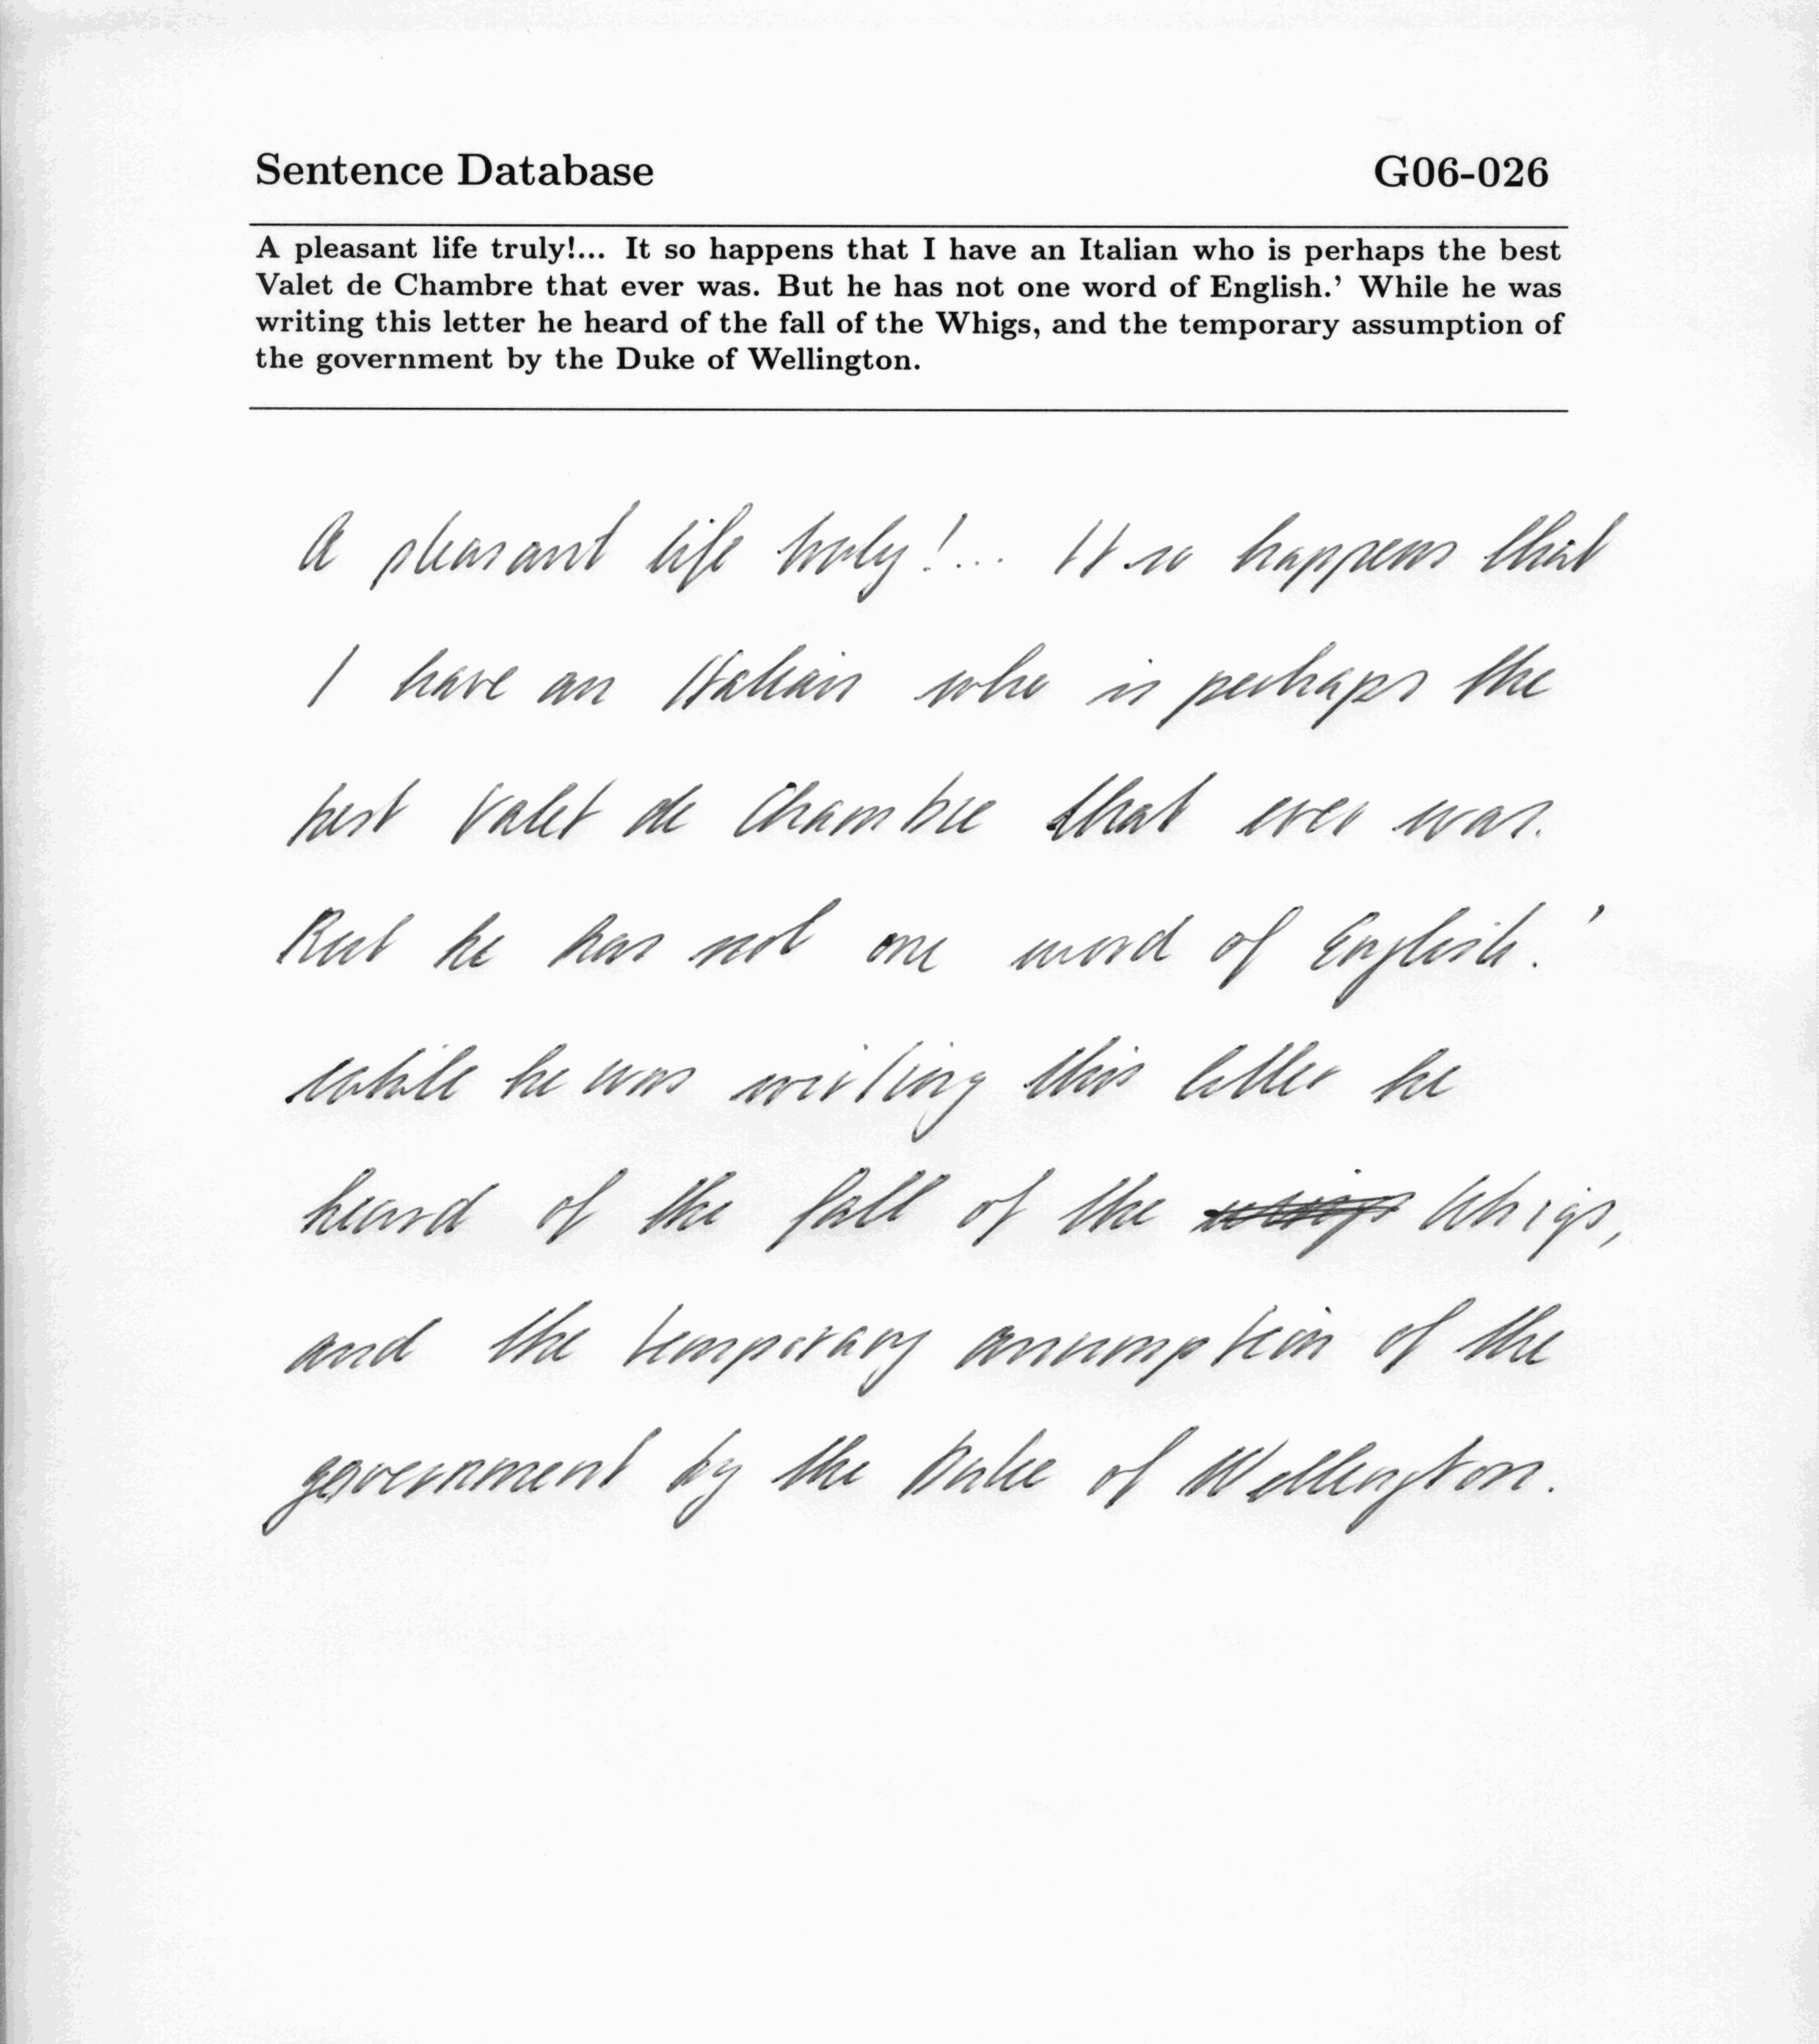 Sentence Database G06-026
A pleasant life truly!... It so happens that I have an Italian who is perhaps the best
Valet de Chambre that ever was. But he has not one word of English.’ While he was
writing this letter he heard of the fall of the Whigs, and the temporary assumption of
the government by the Duke of Wellington.
A pleasant life truly!... It so happens that
I have an Italian who is perhaps the
best Valet de Chambre that ever was.
But he has not one word of English.'
while he was writing this letter he
heard of the fall of the Whigs,
and the temporary assumption of the
government by the Duke of Wellington.